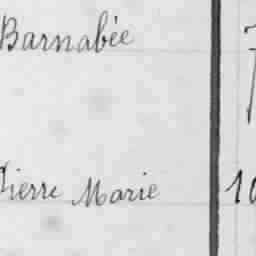 Barnabée
Pierre Marie 10